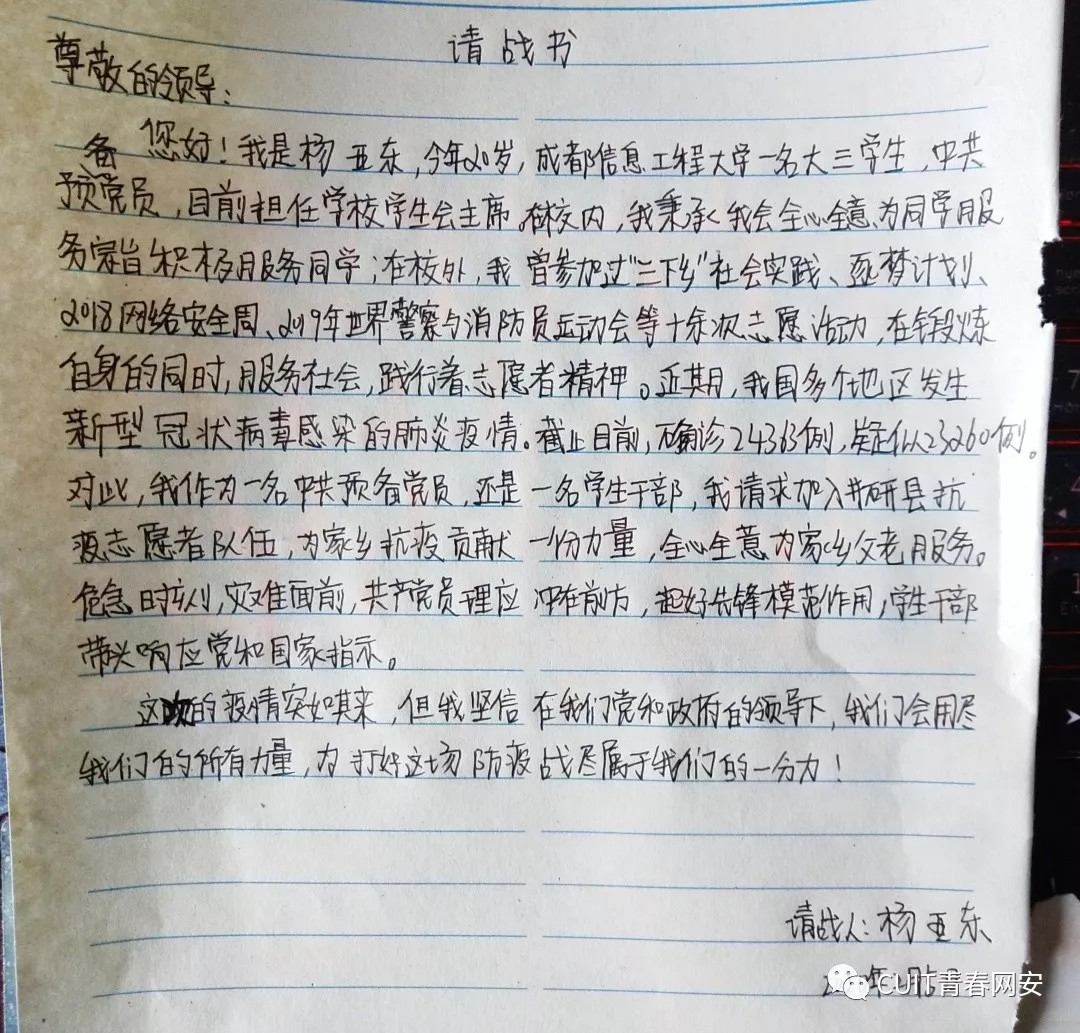 请战书
尊敬的领导：
您好！我是杨亚东，今年20岁，成都信息工程大学一名大三学生，中共
备
预党员，目前担任学校学生会主席。在校内，我秉承我会全心全意为同学服
务宗旨积极服务同学；在校外，我曾参加过“三下乡”社会实践、逐梦计划、
2018网络安全周、2019年世界警察与消防员运动会等十余次志愿活动，在锻炼
自身的同时，服务社会，践行着志愿者精神。近期，我国多个地区发生
新型冠状病毒感染的肺炎疫情。截止目前，确诊24363例，疑似23260例。
对此，我作为一名中共预备党员，还是一名学生干部，我请求加入井研县抗
疫志愿者队伍，为家乡抗疫贡献一份力量，全心全意为家乡父老服务。
危急时刻，灾难面前，共产党员理应冲在前方，起好先锋模范作用，学生干部
带头响应党和国家指示。
这次的疫情突如其来，但我坚信在我们党和政府的领导下，我们会用尽
我们的所有力量，为打好这场防疫战尽属于我们的一分力！
请战人：杨亚东
年 月5
CUIT青春网安